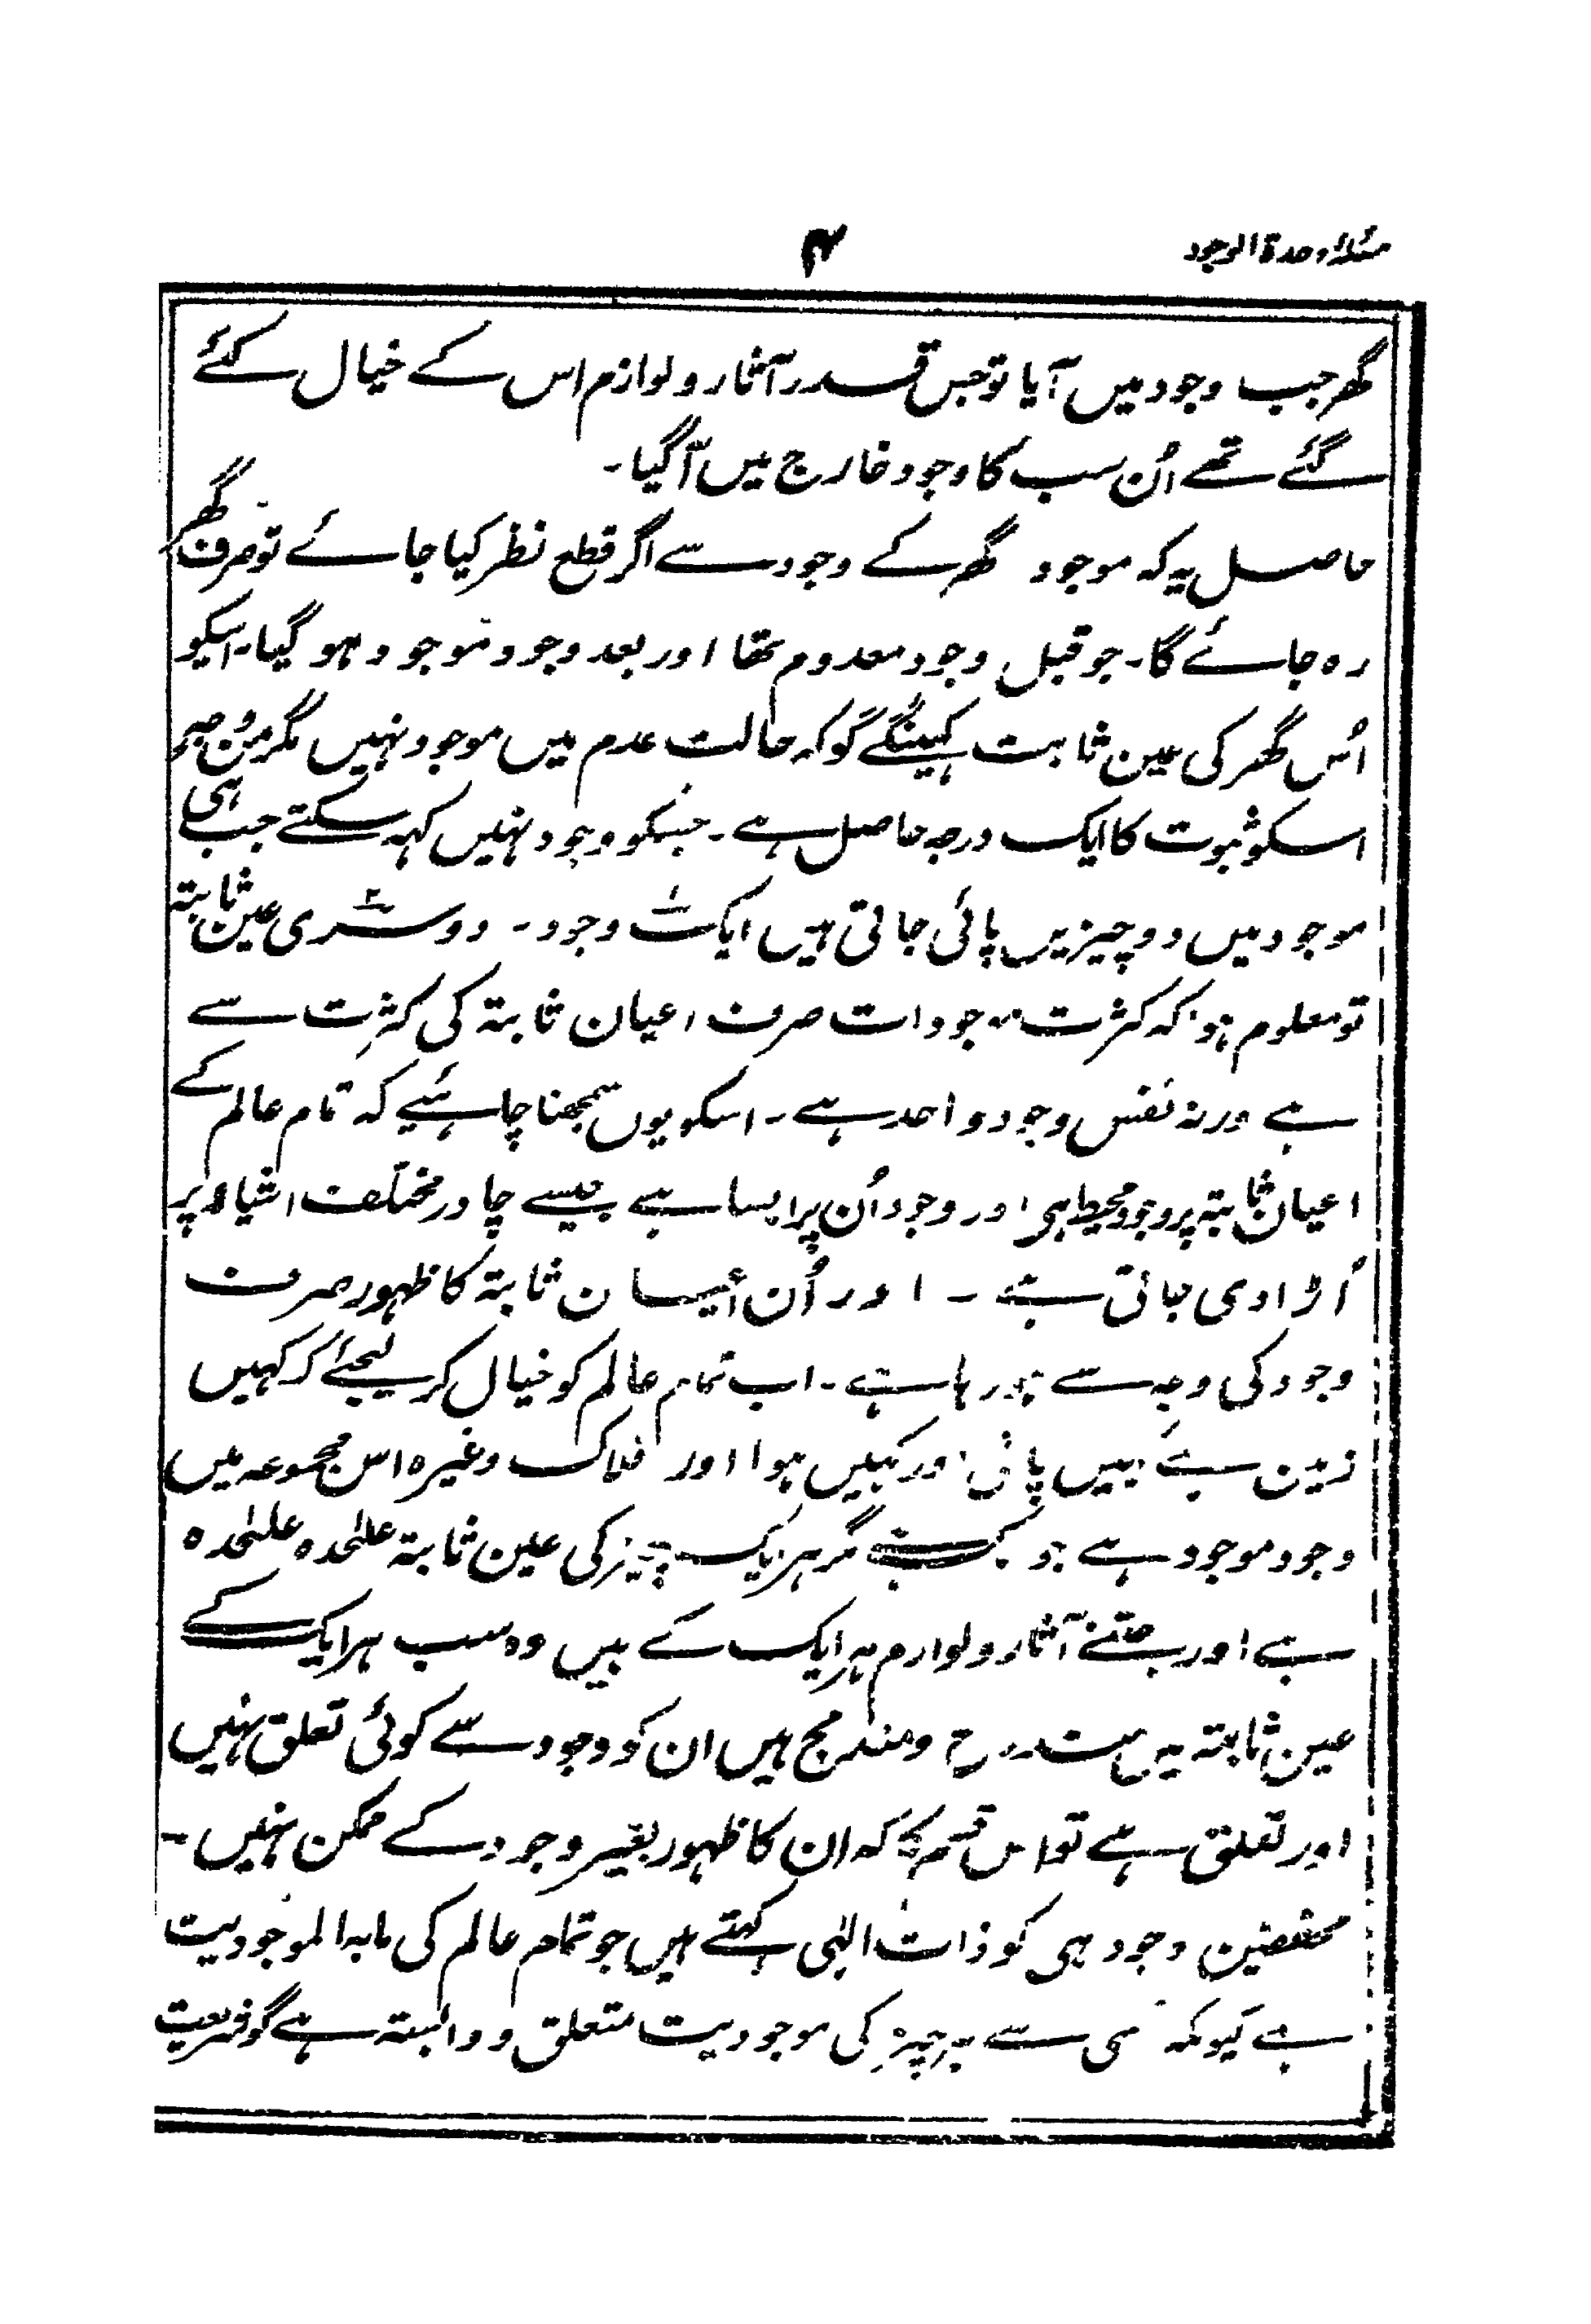 مسئلۂ وحدۃ الوجود
۴
گھر جب وجود میں آیا تو جس قدر آثار و لوازم اس کے خیال کئے
گئے تھے اُن سب کا وجود خارج میں آگیا۔
حاصل یہ کہ موجود گھر کے وجود سے اگر قطع نظر کیا جائے تو صرف گھر
رہ جائے گا۔ جو قبل وجود معدوم تھا اور بعد وجود موجود ہو گیا۔ اسکو
اُس گھر کی عین ثابت کہینگے گو کہ حالت عدم میں موجود نہیں مگر من وجہ
اسکو ثبوت کا ایک درجہ حاصل ہے۔ جسکو وجود نہیں کہہ سکتے جب ہی
موجود میں دو چیزیں پائی جاتی ہیں ایک وجود۔ دوسری عین ثابتہ
تو معلوم ہوا کہ کثرت موجودات صرف اعیان ثابتہ کی کثرت سے
ہے ورنہ نفس وجود واحد ہے۔ اسکو یوں سمجھنا چاہئیے کہ تمام عالم کے
اعیان ثابتہ پر وجود محیط ہی اور وجود اُن پر ایسا ہے جیسے چادر مختلف اشیاء پر
اُڑا دی جاتی ہے۔ اور اُن اعیان ثابتہ کا ظہور صرف
وجود کی وجہ سے ہو رہا ہے۔ اب تمام عالم کو خیال کر لیجئے کہ کہیں
زمین ہے کہیں پانی اور کہیں ہوا اور افلاک وغیرہ اس مجموعہ میں
وجود موجود ہے جو ایک ہے مگر ہر ایک چیز کی عین ثابتہ علٰحدہ علٰحدہ
ہے اور جتنے آثار و لوازم ہر ایک کے ہیں وہ سب ہر ایک کے
عین ثابتہ میں مندرج و مندمج ہیں ان کو وجود سے کوئی تعلق نہیں
اور تعلق ہے تو اس قسم کا کہ ان کا ظہور بغیر وجود کے ممکن نہیں۔
محققین وجود ہی کو ذات الٰہی کہتے ہیں جو تمام عالم کی مابہ الموجودیت
ہے کیونکہ اسی سے ہر چیز کی موجودیت متعلق و وابستہ ہے گو شریعت